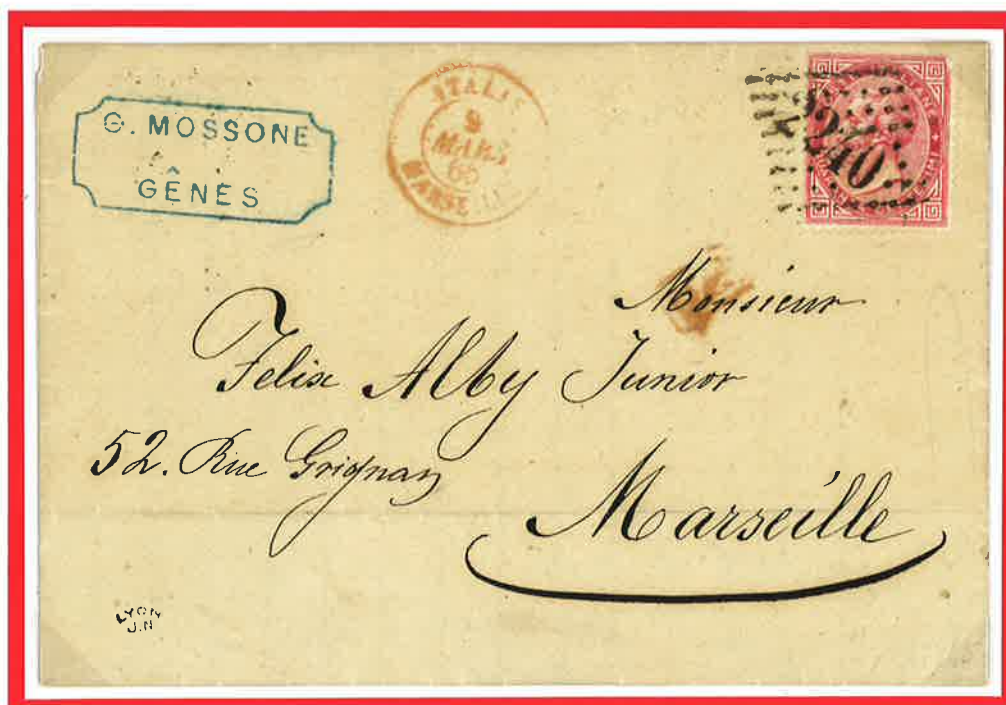 G. MOSSONE
GÊNES
ITALIE
9
MARS
65
MARSEILLE
2240
Monsieur
Felix Alby Junior
52. Rue Grignan
Marseille
LYON
J.N